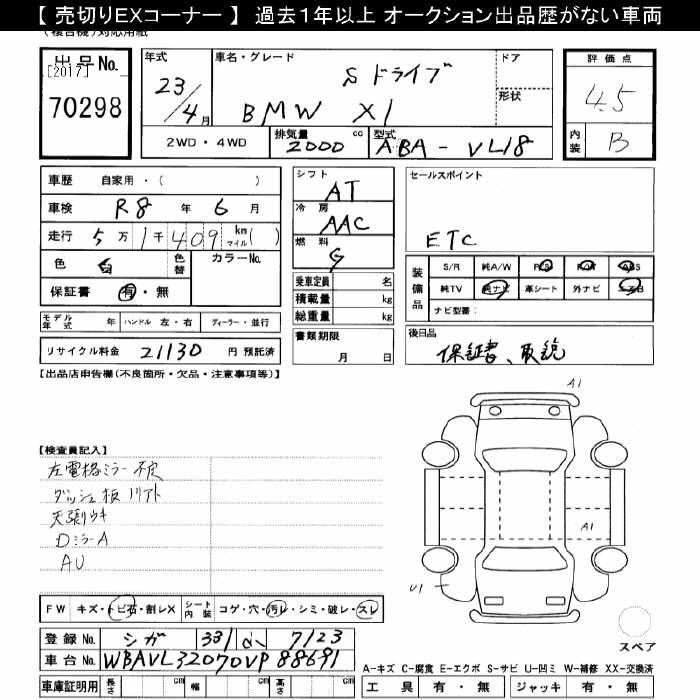 【 売切りEXコーナー 】 過去１年以上 オークション出品歴がない車両
出品No.
[2017]
70298
年式
23/4月
車名・グレード
S ドライブ
BMW X1
ドア
形状
評価点
4.5
内装 B
2WD・4WD
排気量 2000 cc
型式 ABA-VL18
車歴 自家用・( )
車検 R8 年 6 月
走行 5万1千409 km マイル( )
色 白 色替
カラーNo.
保証書 有・無
シフト AT
冷房 AAC
燃料 G
乗車定員 名
積載量 kg
総重量 kg
セールスポイント
ETC
装備品
S/R 純A/W P/S P/W ABS
純TV 純ナビ 革シート 外ナビ エアB
ナビ型番:
モデル年式 年 ハンドル 左・右 ディーラー・並行
リサイクル料金 21130 円 預託済
書類期限 月 日
後日品
保証書、取説
【出品店申告欄(不良箇所・欠品・注意事項等)】
A1
【検査員記入】
左電格ミラー不良
ダッシュ板
天張ウキ
DミラーA
AU
A1
U1
FW キズ・トビ石・割レX
シート内装 コゲ・穴・汚レ・シミ・破レ・スレ
スペア
登録No. シガ 331 7123
車台No. WBAVL32070VP88691
A-キズ C-腐食 E-エクボ S-サビ U-凹ミ W-補修 XX-交換済
車庫証明用 長さ cm 幅 cm 高さ cm
工具 有・無 ジャッキ 有・無